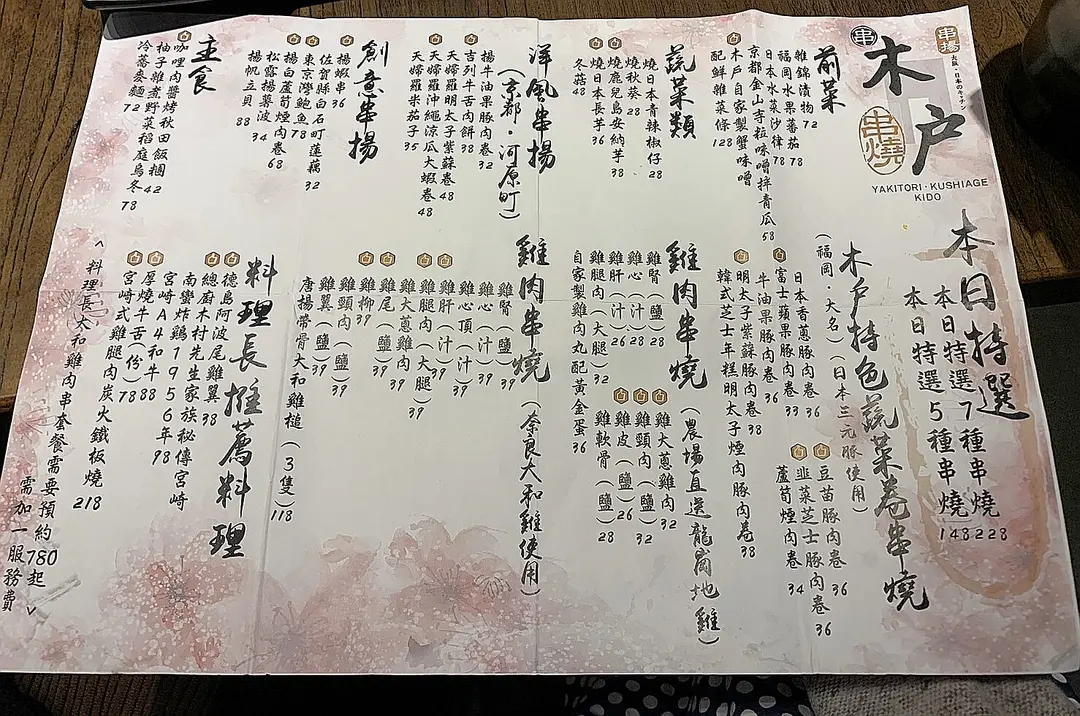 串
木戸
串燒
串揚
YAKITORI・KUSHIAGE
KIDO
本日特選
本日特選7種串燒 228
本日特選5種串燒 148
前菜
雜錦漬物 72
福岡水果蕃茄 78
日本水菜沙律 78
京都金山寺粒味噌拌青瓜 58
木戶自家製蟹味噌
配鮮雜菜條 128
蔬菜類
燒日本青辣椒仔 28
燒秋葵 28
燒鹿兒島安納芋 38
燒日本長芋 36
冬菇 48
洋風串揚
(京都・河原町)
揚牛油果豚肉卷 32
吉列牛舌肉餅 38
天婦羅明太子紫蘇卷 48
天婦羅沖繩涼瓜大蝦卷 48
天婦羅粟米茄子 35
創意串揚
揚蝦串 36
佐賀縣白石町蓮藕 32
東京灣鮑魚 78
揚白蘆荀煙肉卷 68
松露揚蕃薯波 34
揚帆立貝 88
主食
咖哩肉醬烤秋田飯糰 42
柚子雜煮野菜稻庭烏冬 78
冷蕎麥麵 72
木戶特色蔬菜卷串燒
(福岡・大名) (日本三元豚使用)
日本香蔥豚肉卷 36
富士蘋果豚肉卷 33
牛油果豚肉卷 36
明太子紫蘇豚肉卷 38
韓式芝士年糕明太子煙肉豚肉卷 38
豆苗豚肉卷 36
韮菜芝士豚肉卷 36
蘆荀煙肉卷 34
雞肉串燒
(農場直送龍崗地雞)
雞腎(鹽) 28
雞心(汁) 28
雞肝(汁) 26
雞腿肉(大腿) 32
自家製雞肉丸配黃金蛋 36
雞大蔥雞肉 32
雞頸肉(鹽) 32
雞皮(鹽) 26
雞軟骨(鹽) 28
雞肉串燒
(奈良大和雞使用)
雞腎(鹽) 39
雞心(汁) 39
雞心頂(汁) 39
雞肝(汁) 39
雞腿肉(大腿) 39
雞大蔥雞肉 39
雞尾(鹽) 39
雞柳 39
雞頸肉(鹽) 39
雞翼(鹽) 39
唐揚帶骨大和雞槌(3隻) 118
料理長推薦料理
德島阿波尾雞翼 38
總廚木村先生家族秘傳宮崎
南蠻炸鷄1956年 98
宮崎A4和牛 88
厚燒牛舌(份) 78
宮崎式雞腿肉炭火鐵板燒 218
<料理長大和雞肉串套餐需要預約780起>
需加一服務費